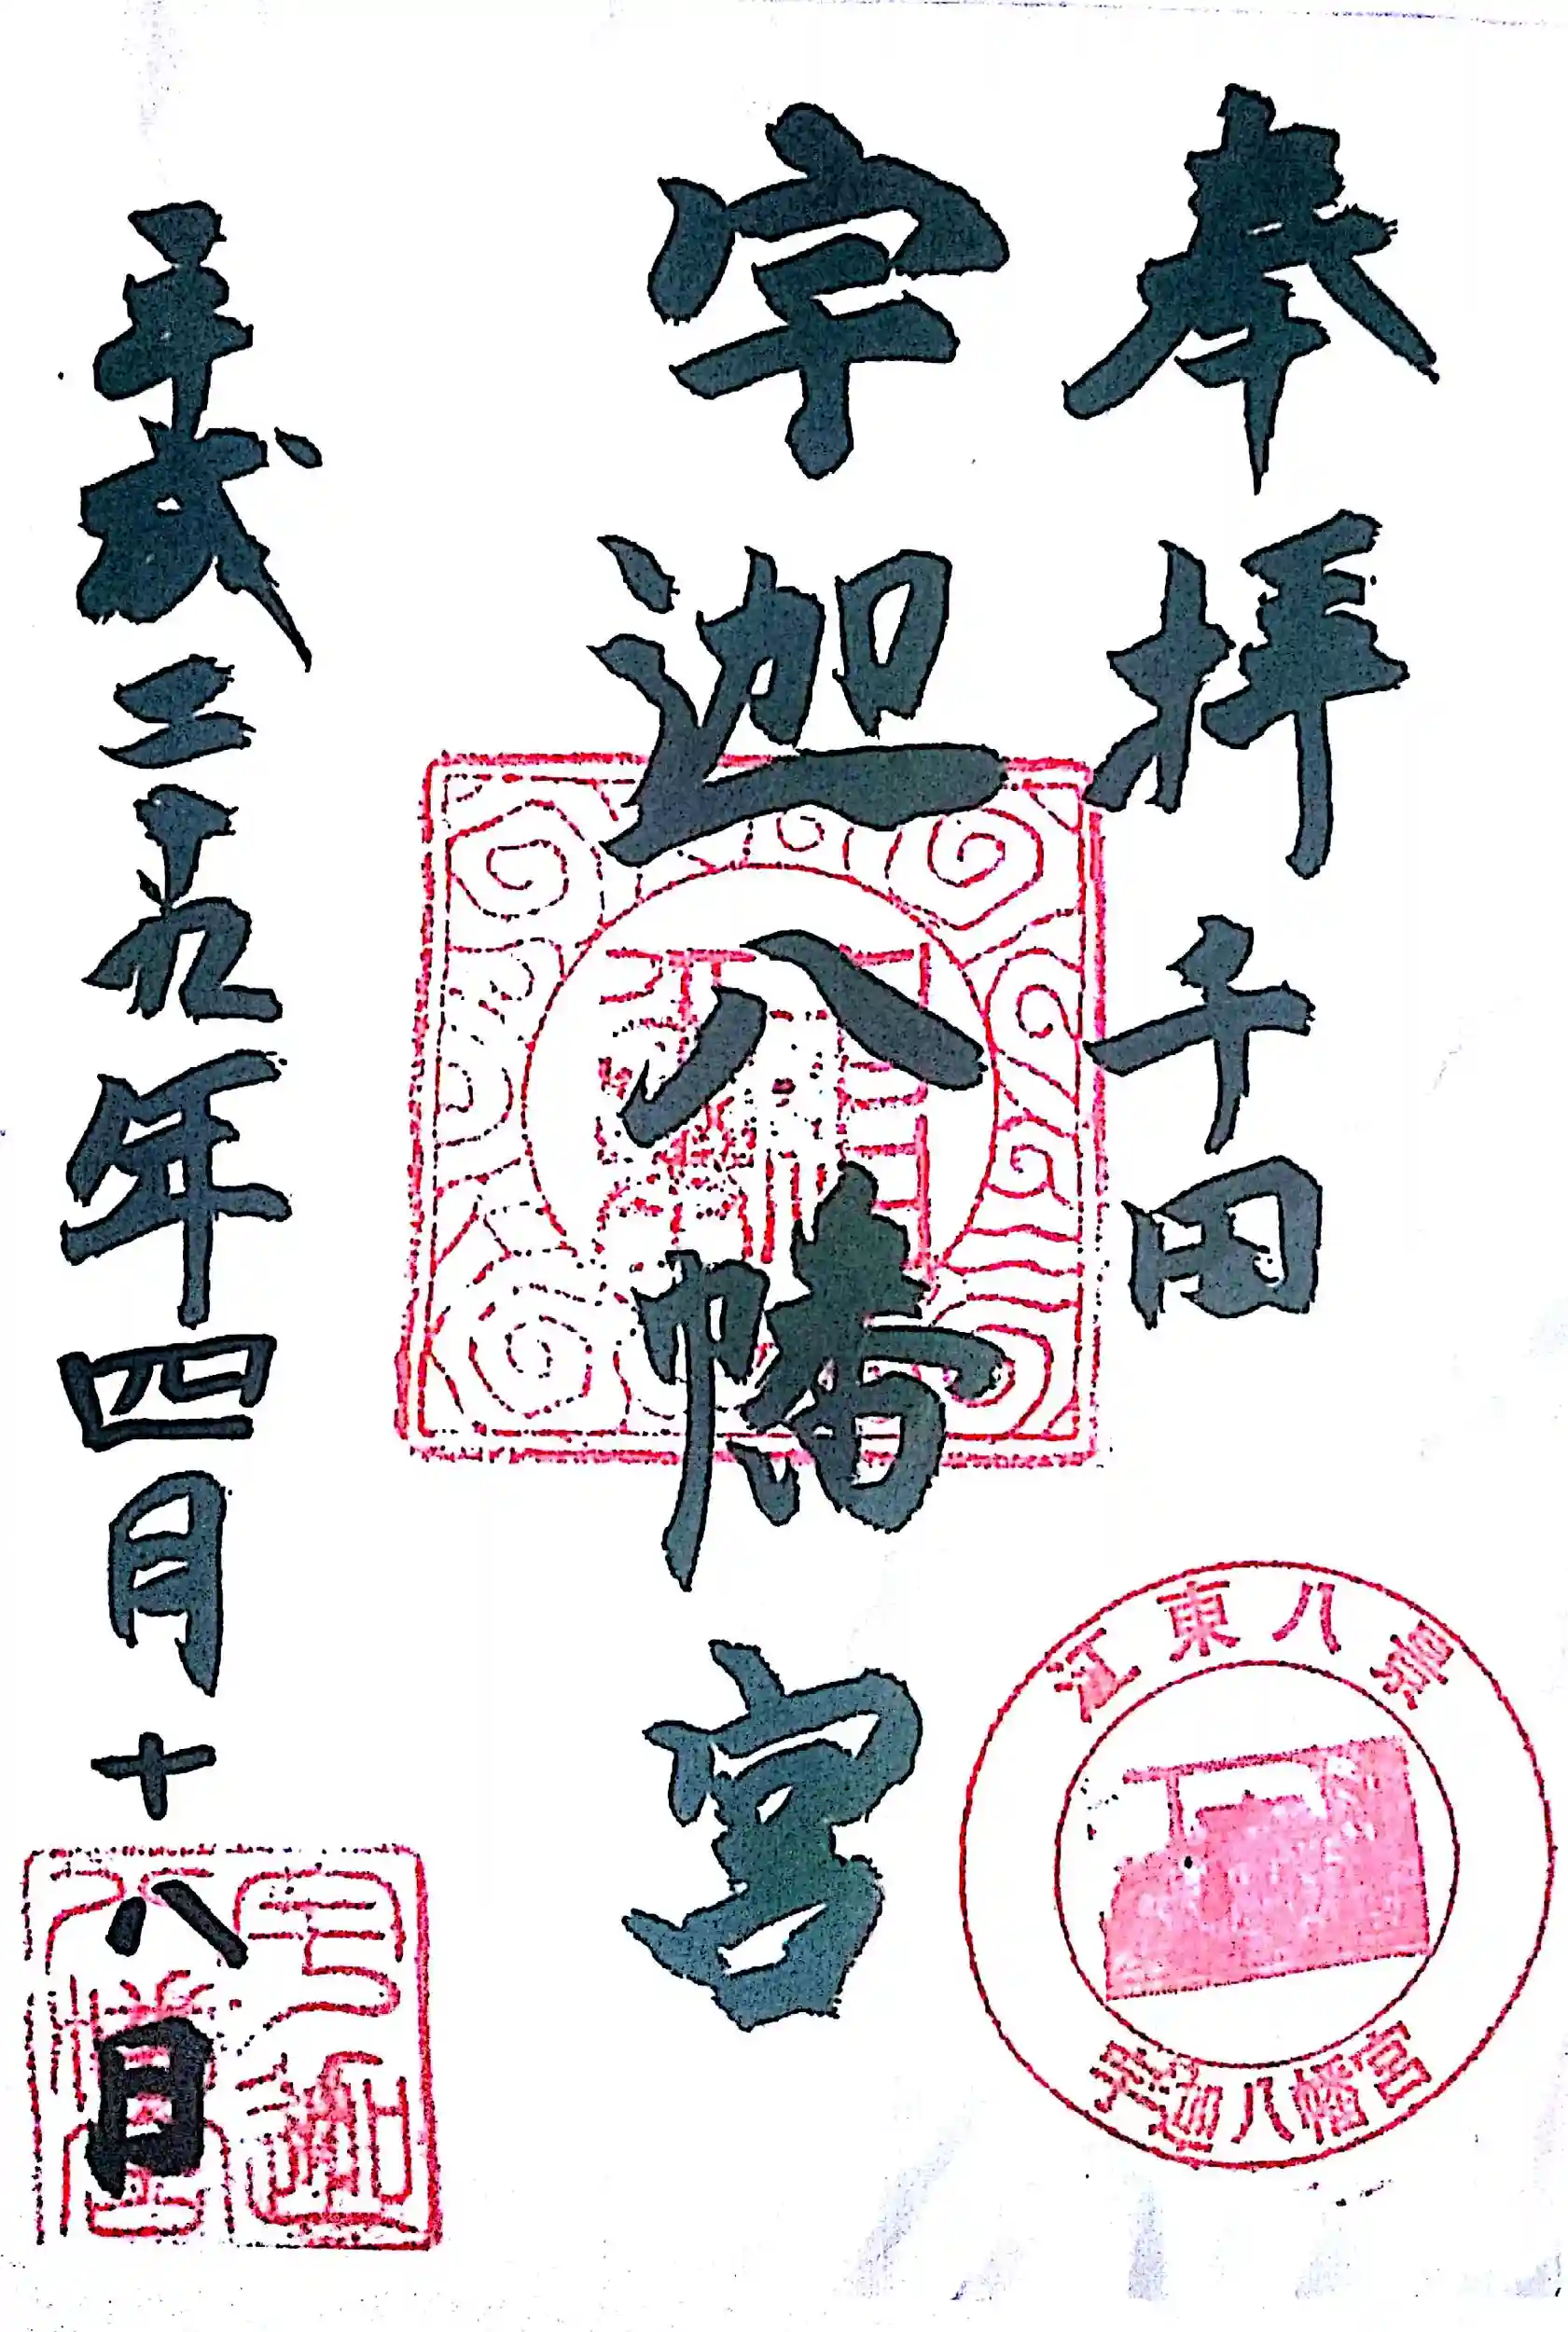 奉拝 千田
江東八景
宇迦八幡宮
宇迦八幡宮
平成二十九年四月十八日
宇迦
八幡宮